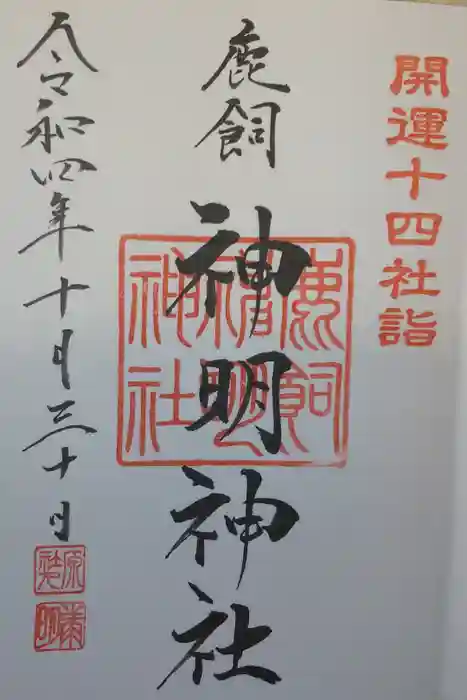 開運十四社詣
鹿飼
神明神社
鹿飼
神明
神社
令和四年十月三十日